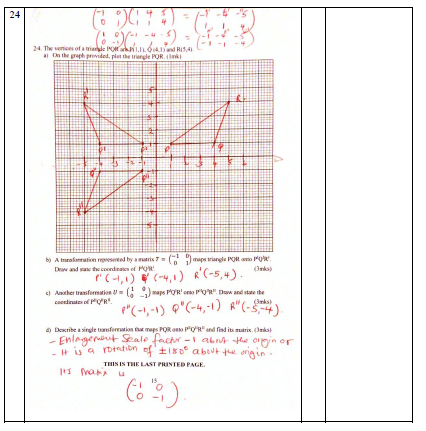 24
(-1 0) (1 4 5) = (-1 -4 -5)
(0 1) (1 1 4) (1 1 4)
(1 0) (-1 -4 -5) = (-1 -4 -5)
(0 -1) (1 1 4) (-1 -1 -4)
24. The vertices of a triangle PQR are P(1,1), Q(4,1) and R(5,4).
a) On the graph provided, plot the triangle PQR. (1mk)
R' R
Q' P' P Q
Q'' P''
R''
b) A transformation represented by a matrix T = (-1 0) maps triangle PQR onto P'Q'R'.
(0 1)
Draw and state the coordinates of P'Q'R' (3mks)
P'(-1,1) Q'(-4,1) R'(-5,4).
c) Another transformation U = (1 0) maps P'Q'R' onto P''Q''R''. Draw and state the
(0 -1)
coordinates of P''Q''R''. (3mks)
P''(-1,-1) Q''(-4,-1) R''(-5,-4).
d) Describe a single transformation that maps PQR onto P''Q''R'' and find its matrix. (3mks)
- Enlargement Scale factor -1 about the origin or
- It is a rotation of ±180° about the origin.
THIS IS THE LAST PRINTED PAGE.
Its matrix is
15
(-1 0)
(0 -1).